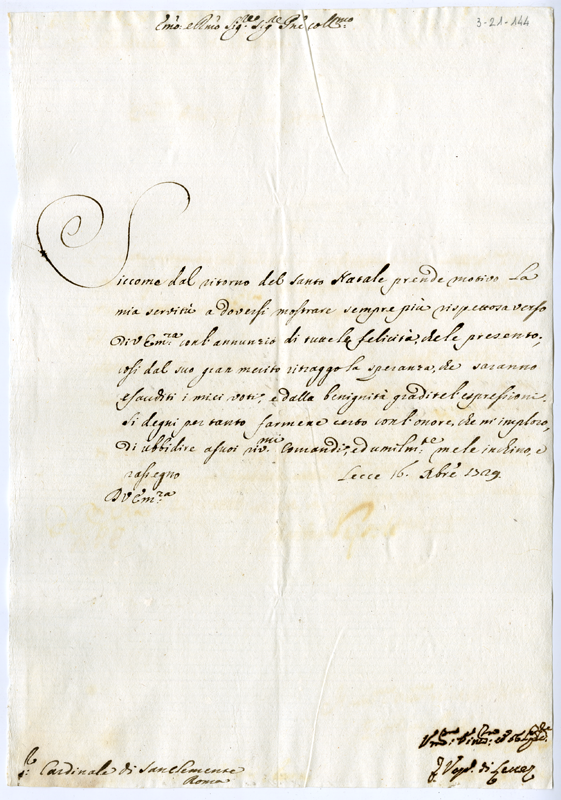 3-21-144
Emo: e Rmo Sigre Sigre Pne Collmo
Siccome dal ritorno del Santo Natale prende motivo La
mia servitù a doversi mostrare sempre più rispettosa verso
Di V Emza con l'annunzio di tutte le felicità, che le presento,
così dal suo gran merito ritraggo la speranza, che saranno
esauditi i miei voti, e dalla benignità gradite l'espressioni.
Si degni per tanto farmene certo con l'onore, che m'imploro,
di ubbidire a suoi rivmi Comandi, ed umilmte me le inchino, e
rassegno Lecce 16. Xbre 1729
Di V Emza
Vmo: Servo
F Vescº di Lecce
Cardinale di San Clemente
Roma